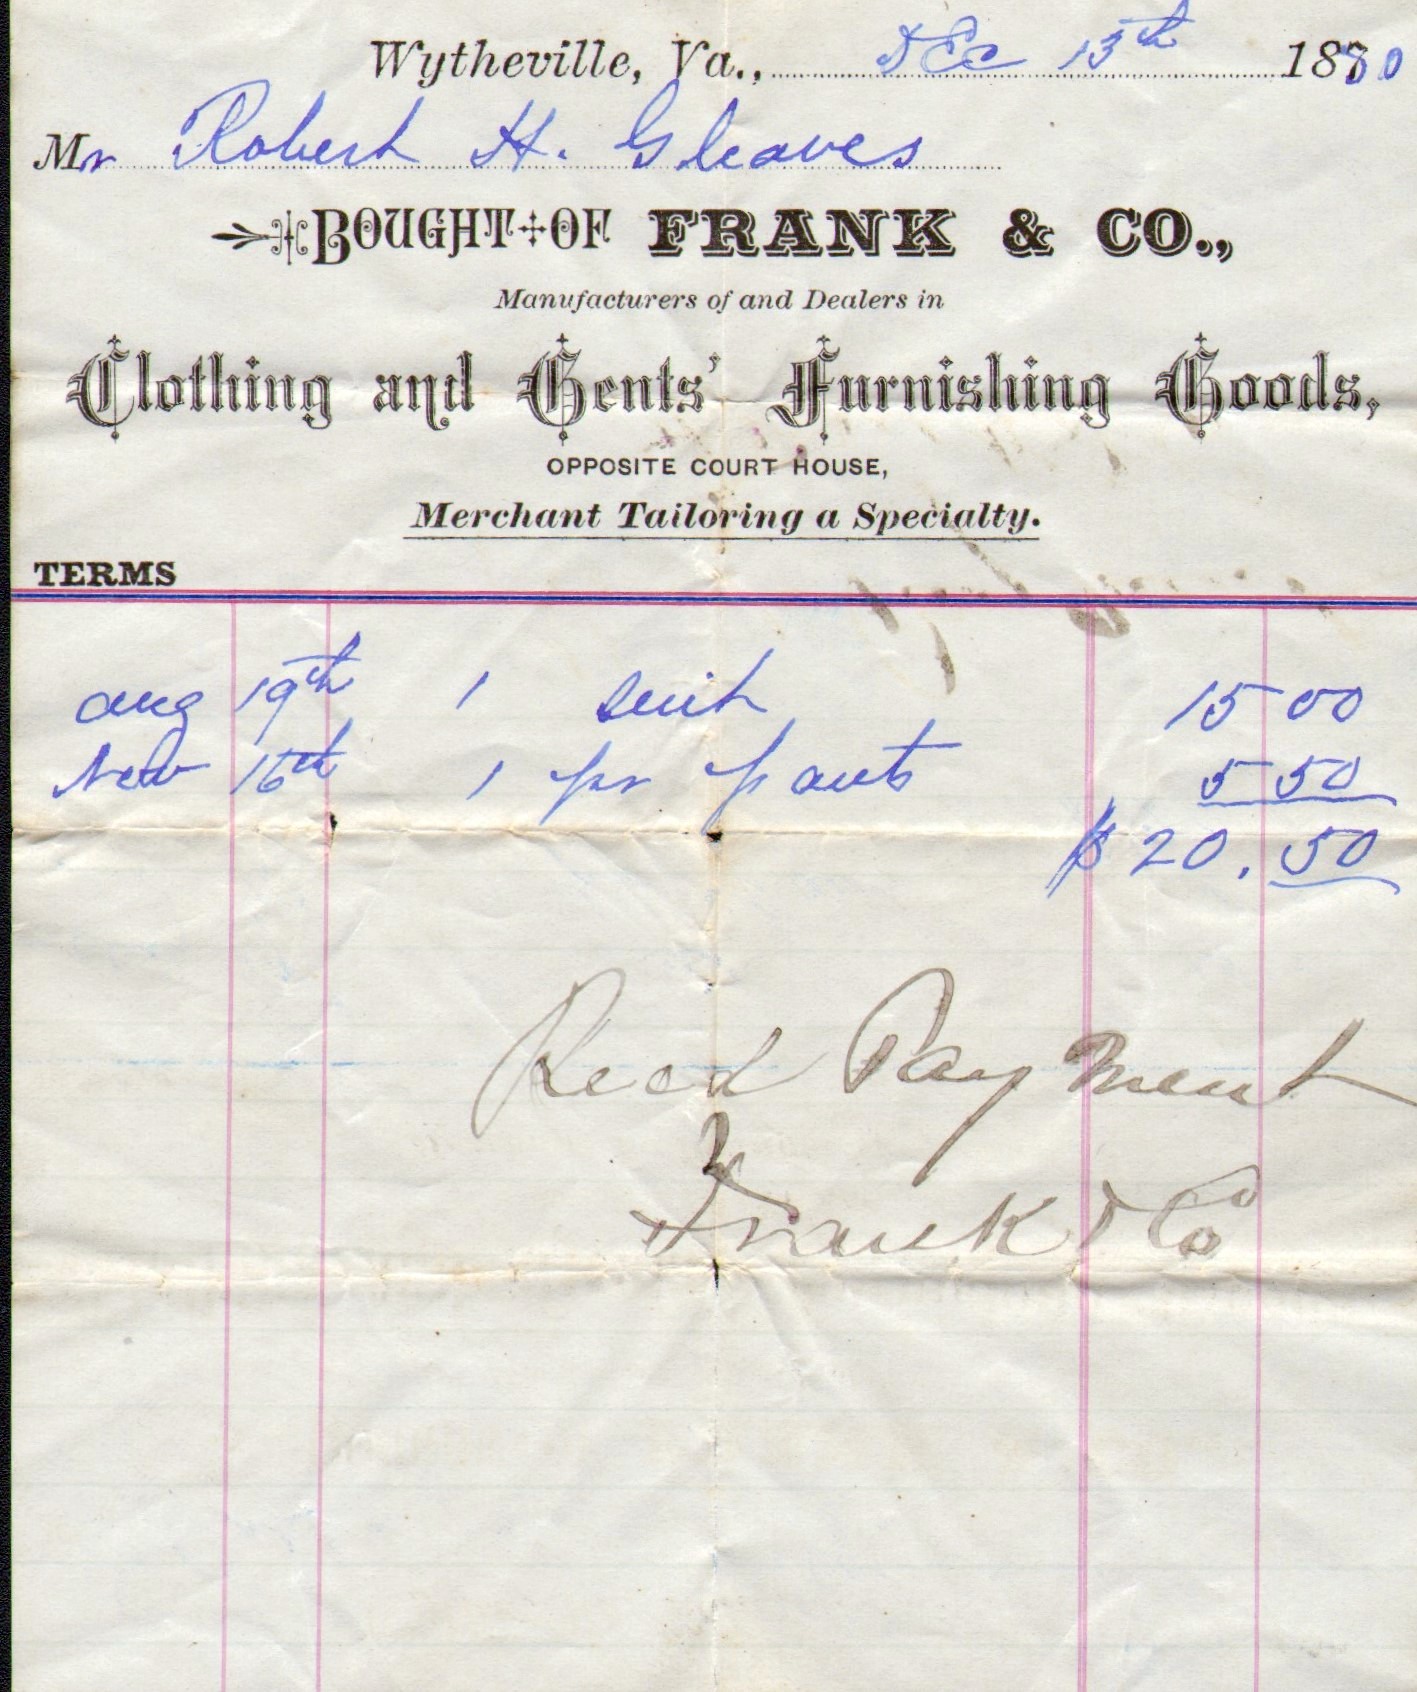 Wytheville, Va., Dec 13th 1880
Mr Robert H. Gleaves
BOUGHT OF FRANK & CO.,
Manufacturers of and Dealers in
Clothing and Gents' Furnishing Goods,
OPPOSITE COURT HOUSE,
Merchant Tailoring a Specialty.
TERMS
Aug 19th 1 suit 15 00
Nov 16th 1 pr pants 5 50
$ 20.50
Recd Payment
Frank & Co